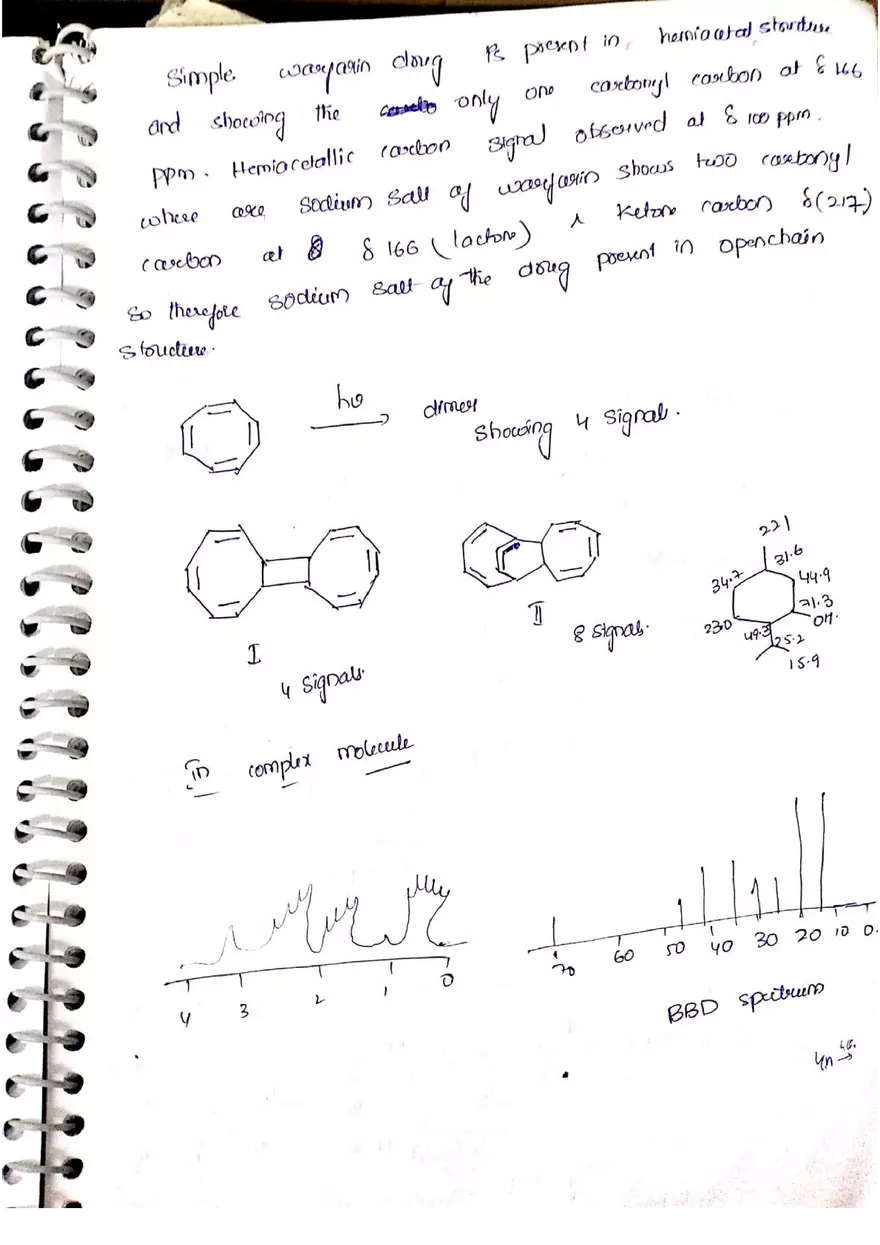 Simple warfarin drug is present in hemiacetal structure
and showing the only one carbonyl carbon at δ 166
ppm. Hemiacetallic carbon signal observed at δ 100 ppm.
where are sodium salt of warfarin shows two carbonyl
carbon at δ 166 (lactone) & Ketone carbon δ(217)
so therefore sodium salt of the drug present in openchain
structure.
hν
dimer
showing 4 signal.
I
4 signals.
II
8 signals.
221
31.6
34.7
44.9
71.3
OH.
230
49.3
25.2
15.9
In complex molecule
4 3 2 1 0
70 60 50 40 30 20 10 0.
BBD spectrum
4n →